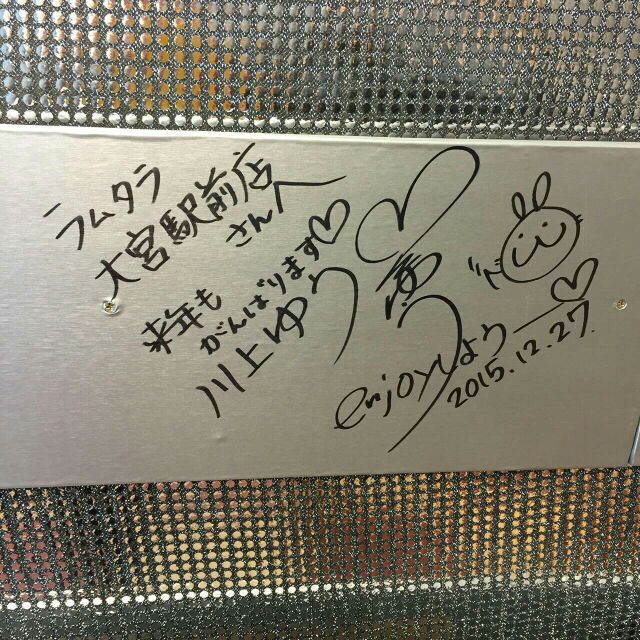 ラムタラ
大宮駅前店
さんへ
来年も
がんばります♡
川上ゆう
enjoyしよう
2015.12.27.